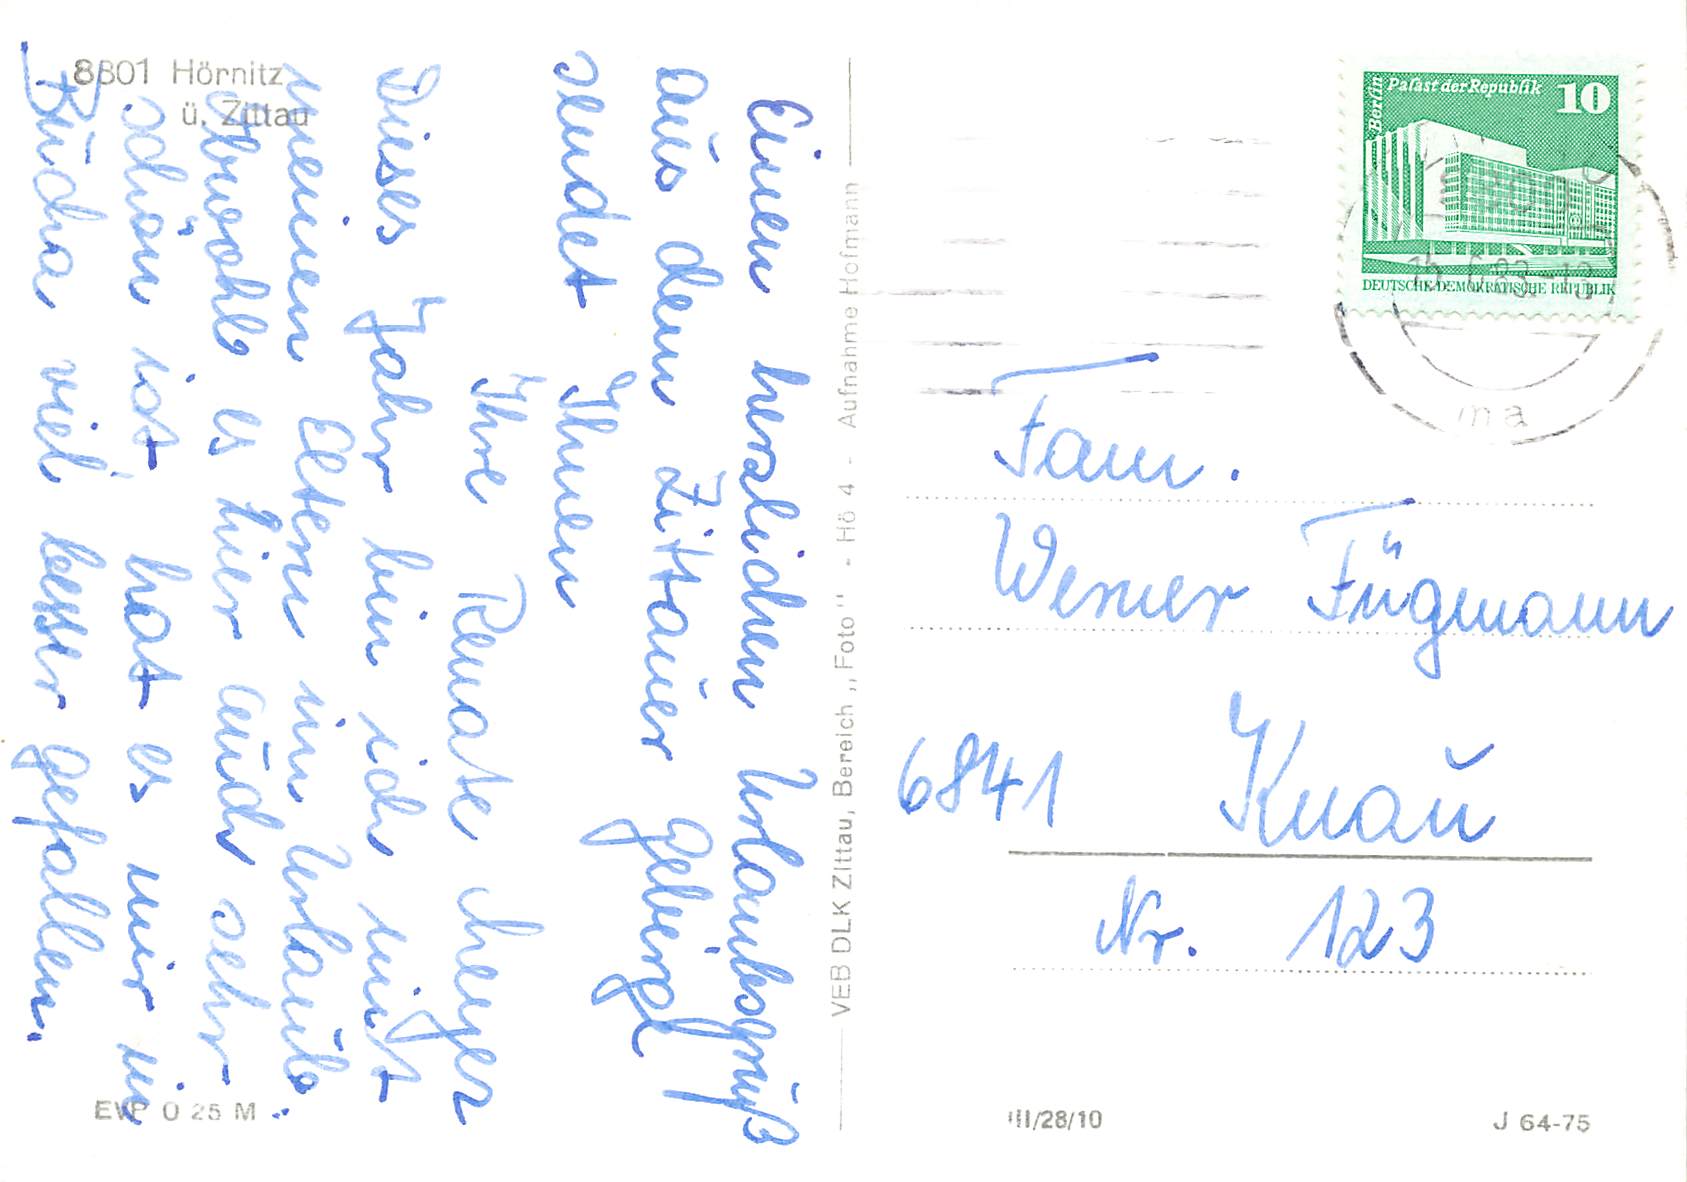 8801 Hörnitz
ü. Zittau
Einen herzlichen Urlaubsgruß
aus dem Zittauer Gebirge
sendet Ihnen
Ihre Renate Meyer
Dieses Jahr bin ich mit
meinen Eltern im Urlaub.
Obwohl es hier auch sehr
schön ist, hat es mir in
Bucha viel besser gefallen.
EVP 0 25 M
VEB DLK Zittau, Bereich „Foto" - Hö 4 - Aufnahme Hofmann
Berlin
Palast der Republik
10
DEUTSCHE DEMOKRATISCHE REPUBLIK
Fam.
Werner Fügmann
6841 Knau
Nr. 123
III/28/10
J 64-75